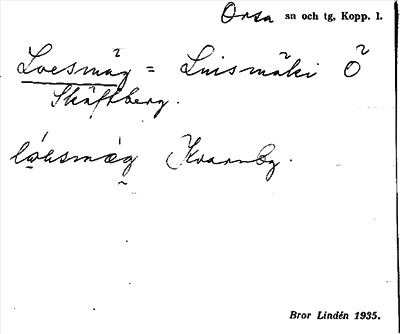 Orsa sn och tg, Kopp. l.
Loesmäg = Luismäki Ö
Skäftberg.
Kvarnby.
Bror Lindén 1935.